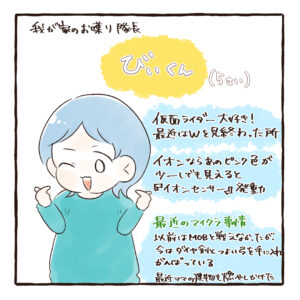 我が家のお喋り隊長
びぃくん
(5さい)
仮面ライダー大好き!
最近はWを見終わった所
イオンならあのピンク色が
少ーしでも見えると
『イオンセンサー』発動
最近のマイクラ事情
以前はMOBと戦えなかったが、
今はダイヤ剣とつよい弓を手に入れ
がんばっている
最近ママの建物も燃やしかけた